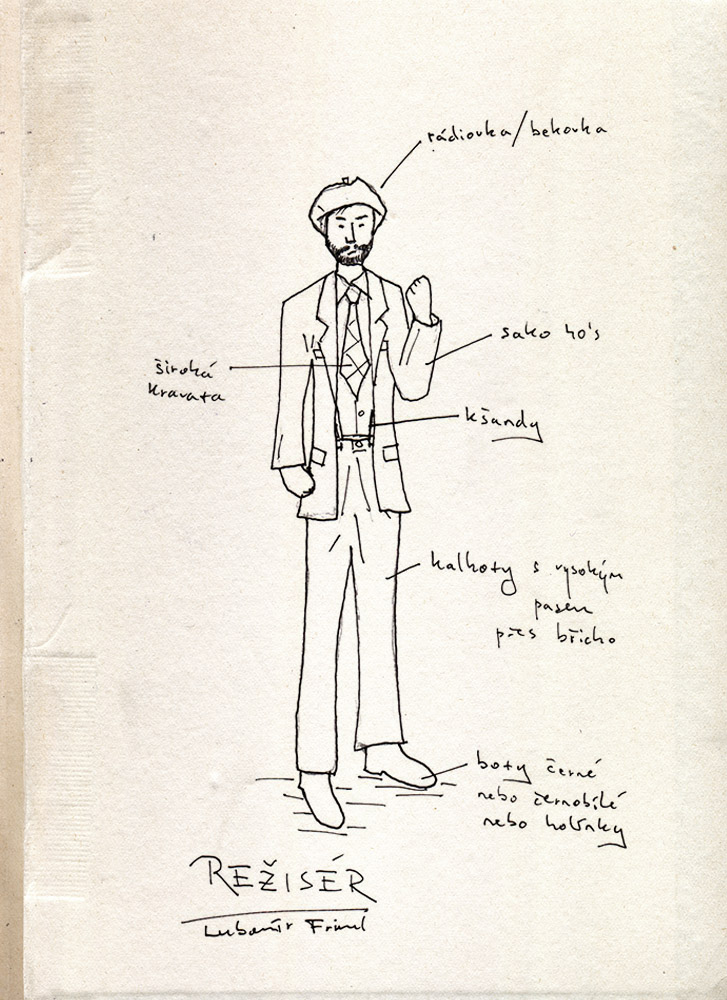 rádiovka/bekovka
sako 40's
široká
kravata
kšandy
kalhoty s vysokým
pasem
přes břicho
boty černé
nebo černobílé
nebo holínky
REŽISÉR
Lubomír